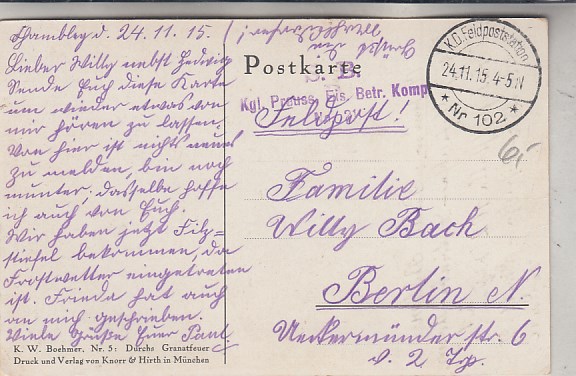 Chambley d. 24.11.15.
Lieber Willy nebst Hedwig
Sende Euch diese Karte
um wieder etwas von
mir hören zu lassen.
Von hier ist nichts neues
zu melden, bin noch
munter, dasselbe hoffe
ich auch von Euch.
Wir haben jetzt Filz=
stiefel bekommen, da
Frostwetter eingetreten
ist. Frieda hat auch
an mich geschrieben.
Viele Grüße Euer Paul.
K. W. Boehmer. Nr. 5: Durchs Granatfeuer
Druck und Verlag von Knorr & Hirth in München
Postkarte
Kgl. Preuss. Eis. Betr. Komp.
Feldpost!
K.D. Feldpoststation
24.11.15. 4-5 N
* Nr 102 *
6.-
Familie
Willy Bach
Berlin N.
Ueckermünder str. 6
v. 2 Trp.